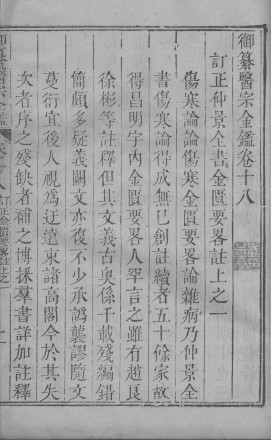 御纂醫宗金鑑卷十八
訂正仲景全書金匱要畧註上之一
傷寒論論傷寒金匱要畧論雜病乃仲景全
書傷寒論得成無已創註續者五十餘家故
得昌明字內金匱要畧人罕言之雖有趙良
徐彬等註釋但其文義古奥係千載殘編錯
簡頗多疑義闕文亦復不少承譌襲謬隨文
蔓衍宜後人視為迂遠束諸高閣今於其失
次者序之殘缺者補之博採羣書詳加註釋